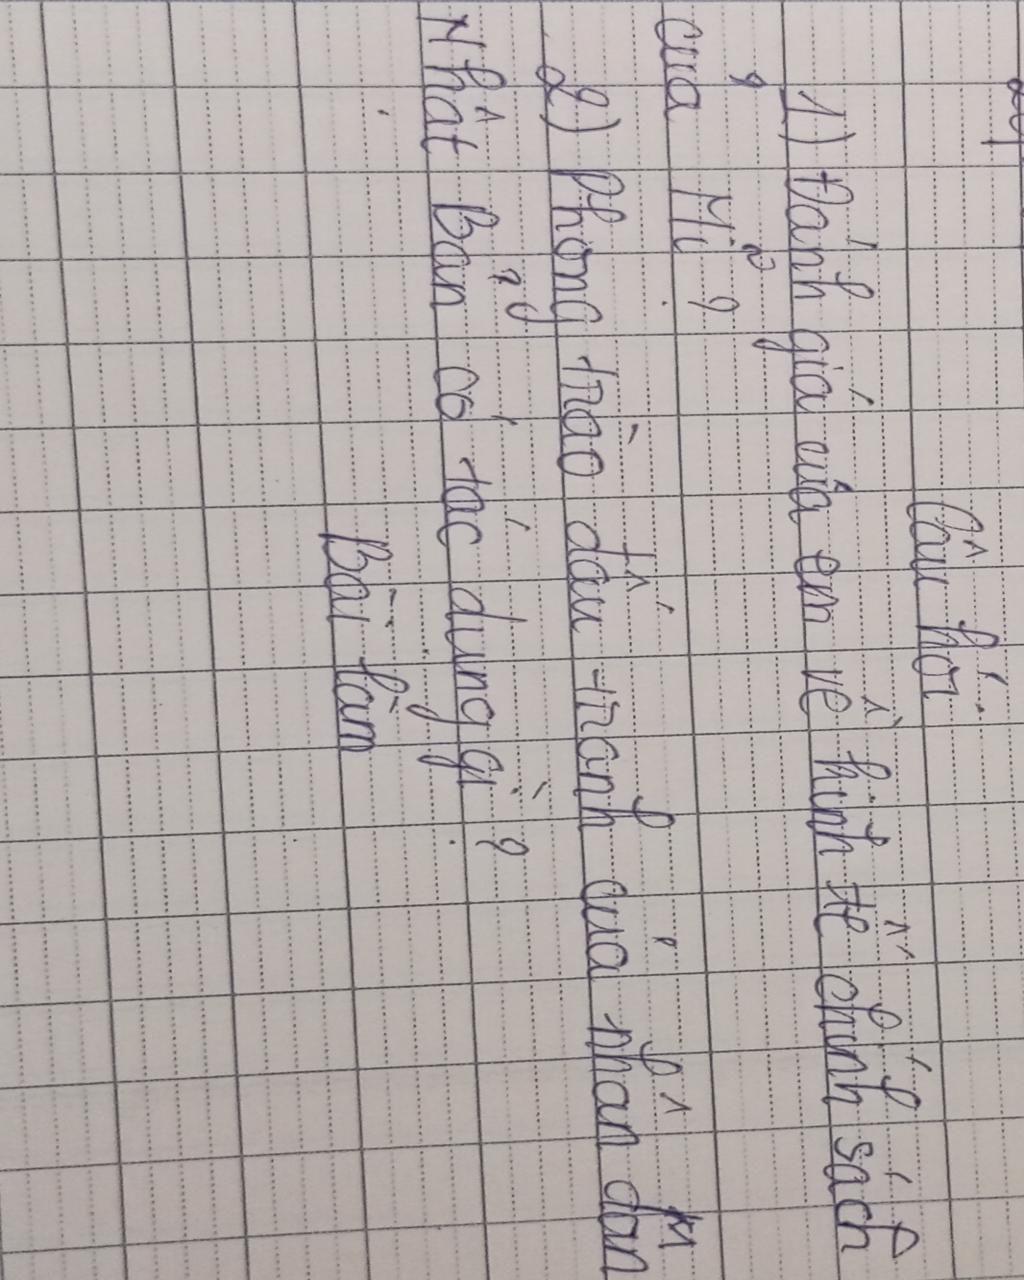 Câu hỏi
1) Đánh giá của em về kinh tế chính sách
của Mĩ ?
2) Phong trào đấu tranh của nhân dân
Nhật Bản có tác dụng gì ?
Bài làm